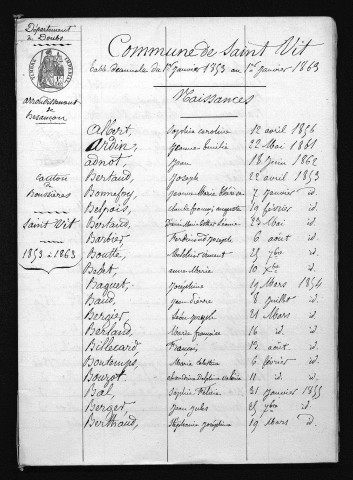 Département
du Doubs
arrondissement
de
Besançon
canton
de
Boussières
Saint Vit
1853 à 1863
Commune de Saint Vit
Table Décennale du 1er janvier 1853 au 1er janvier 1863
Naissances
Albert, Sophie Caroline 12 avril 1856
Ardin, Jeanne Emilie 22 Mai 1861
adnot, Jean 18 Juin 1862
Bertaud, Joseph 22 avril 1853
Bonnefoy, Jeanne Marie 7 janvier id.
Belpois, Claude françois auguste 19 février id.
Bertaud, 23 Mai id.
Barbier, Ferdinand Joseph 6 août id.
Boutte, 25 7bre id.
Bebet, anne Marie 10 Xbre id.
Baguet, Joséphine 19 Mars 1854
Baud, Jean Pierre 8 Juillet id.
Bergier, Joseph 21 Mars id.
Berland, Marie françoise 16 id. id.
Billecard, François 12 août id.
Bontemps, Marie Célestine 6 février id.
Bouzot, Delphine 11 id. id.
Bal, Sophie 21 janvier 1855
Berger, Jean Jules 25 id.
Berthaud, Stéphanie Joséphine 19 Mars id.